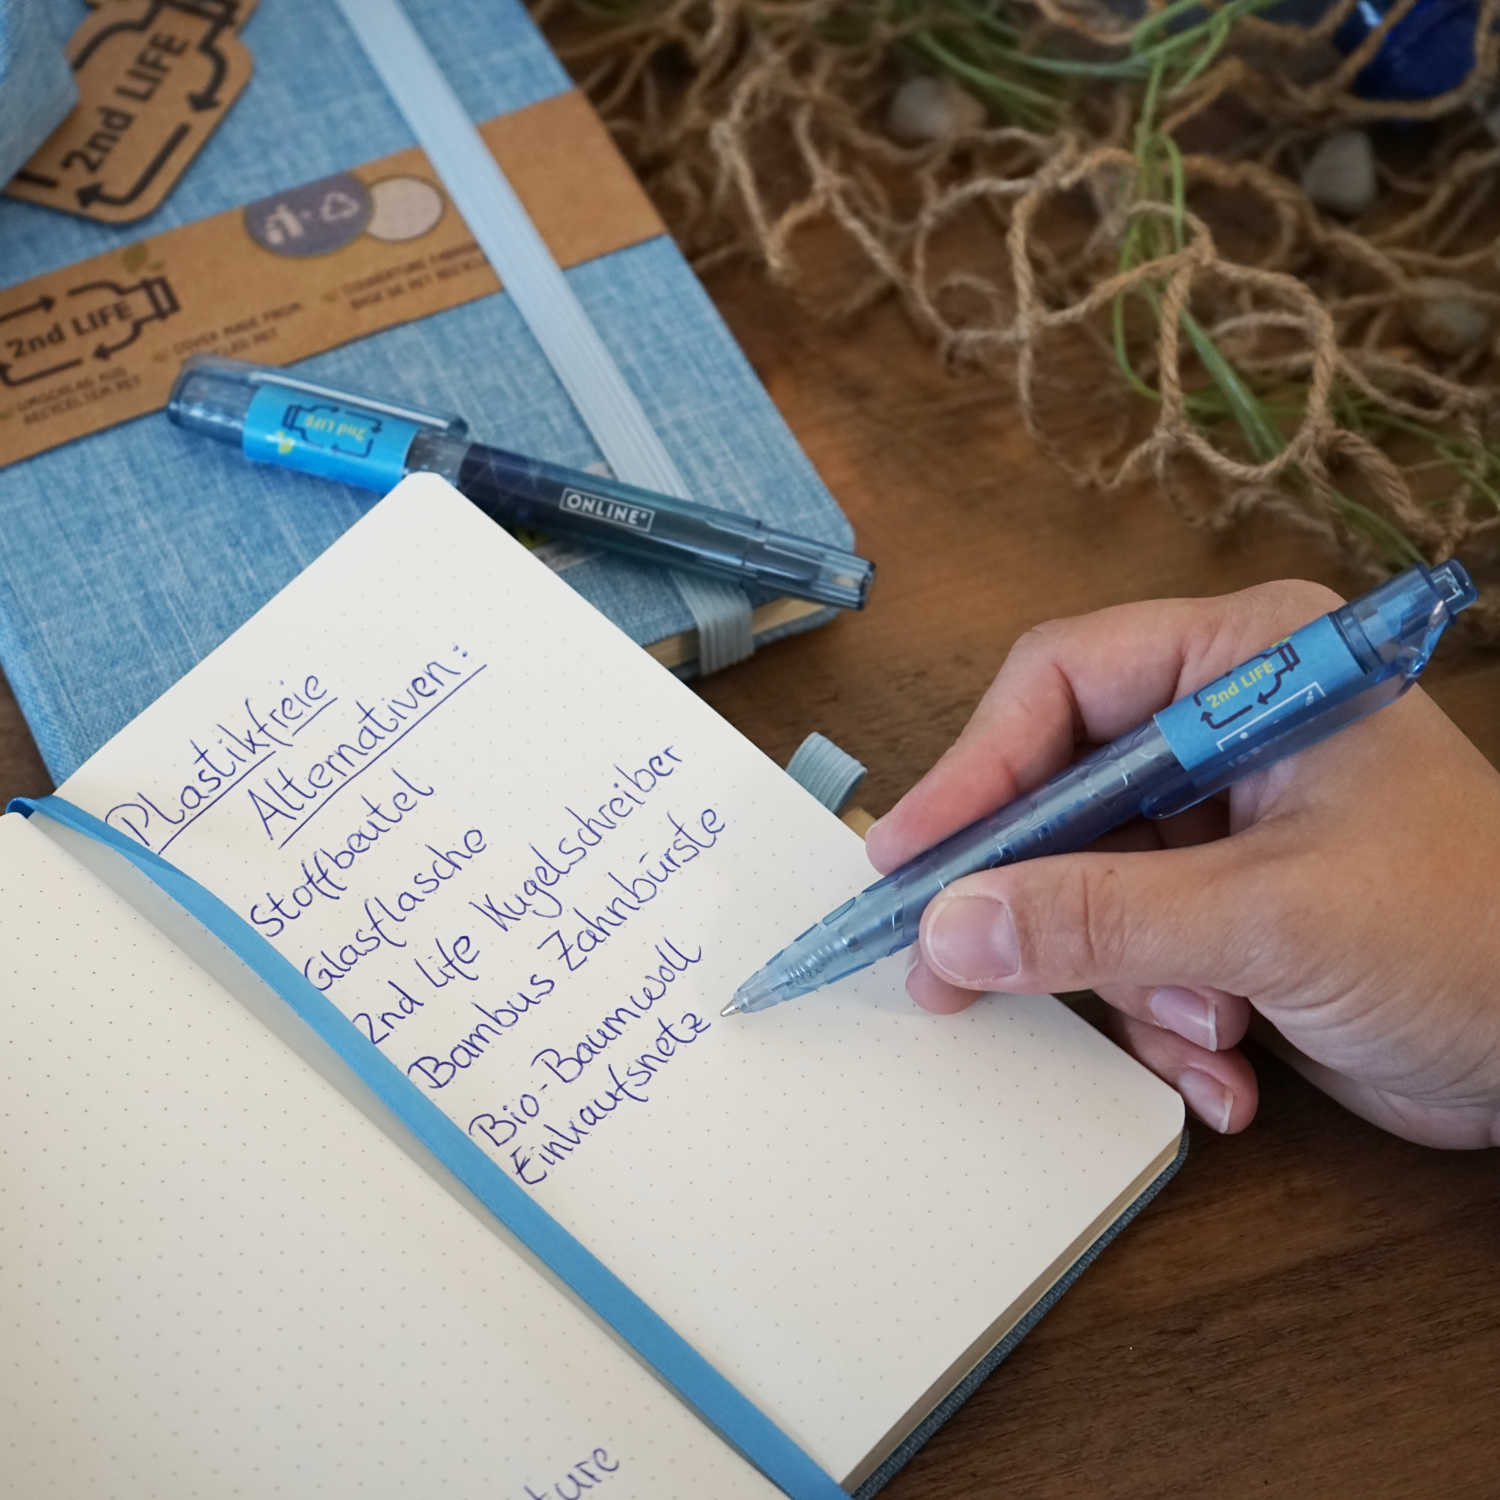 2nd LIFE
2nd LIFE
COVER MADE FROM
UMSCHLAG AUS
RECYCELTEM PET
2nd LIFE
ONLINE®
2nd LIFE
Plastikfreie
Alternativen:
Stoffbeutel
Glasflasche
2nd life Kugelschreiber
Bambus Zahnbürste
Bio-Baumwoll
Einkaufsnetz
ture